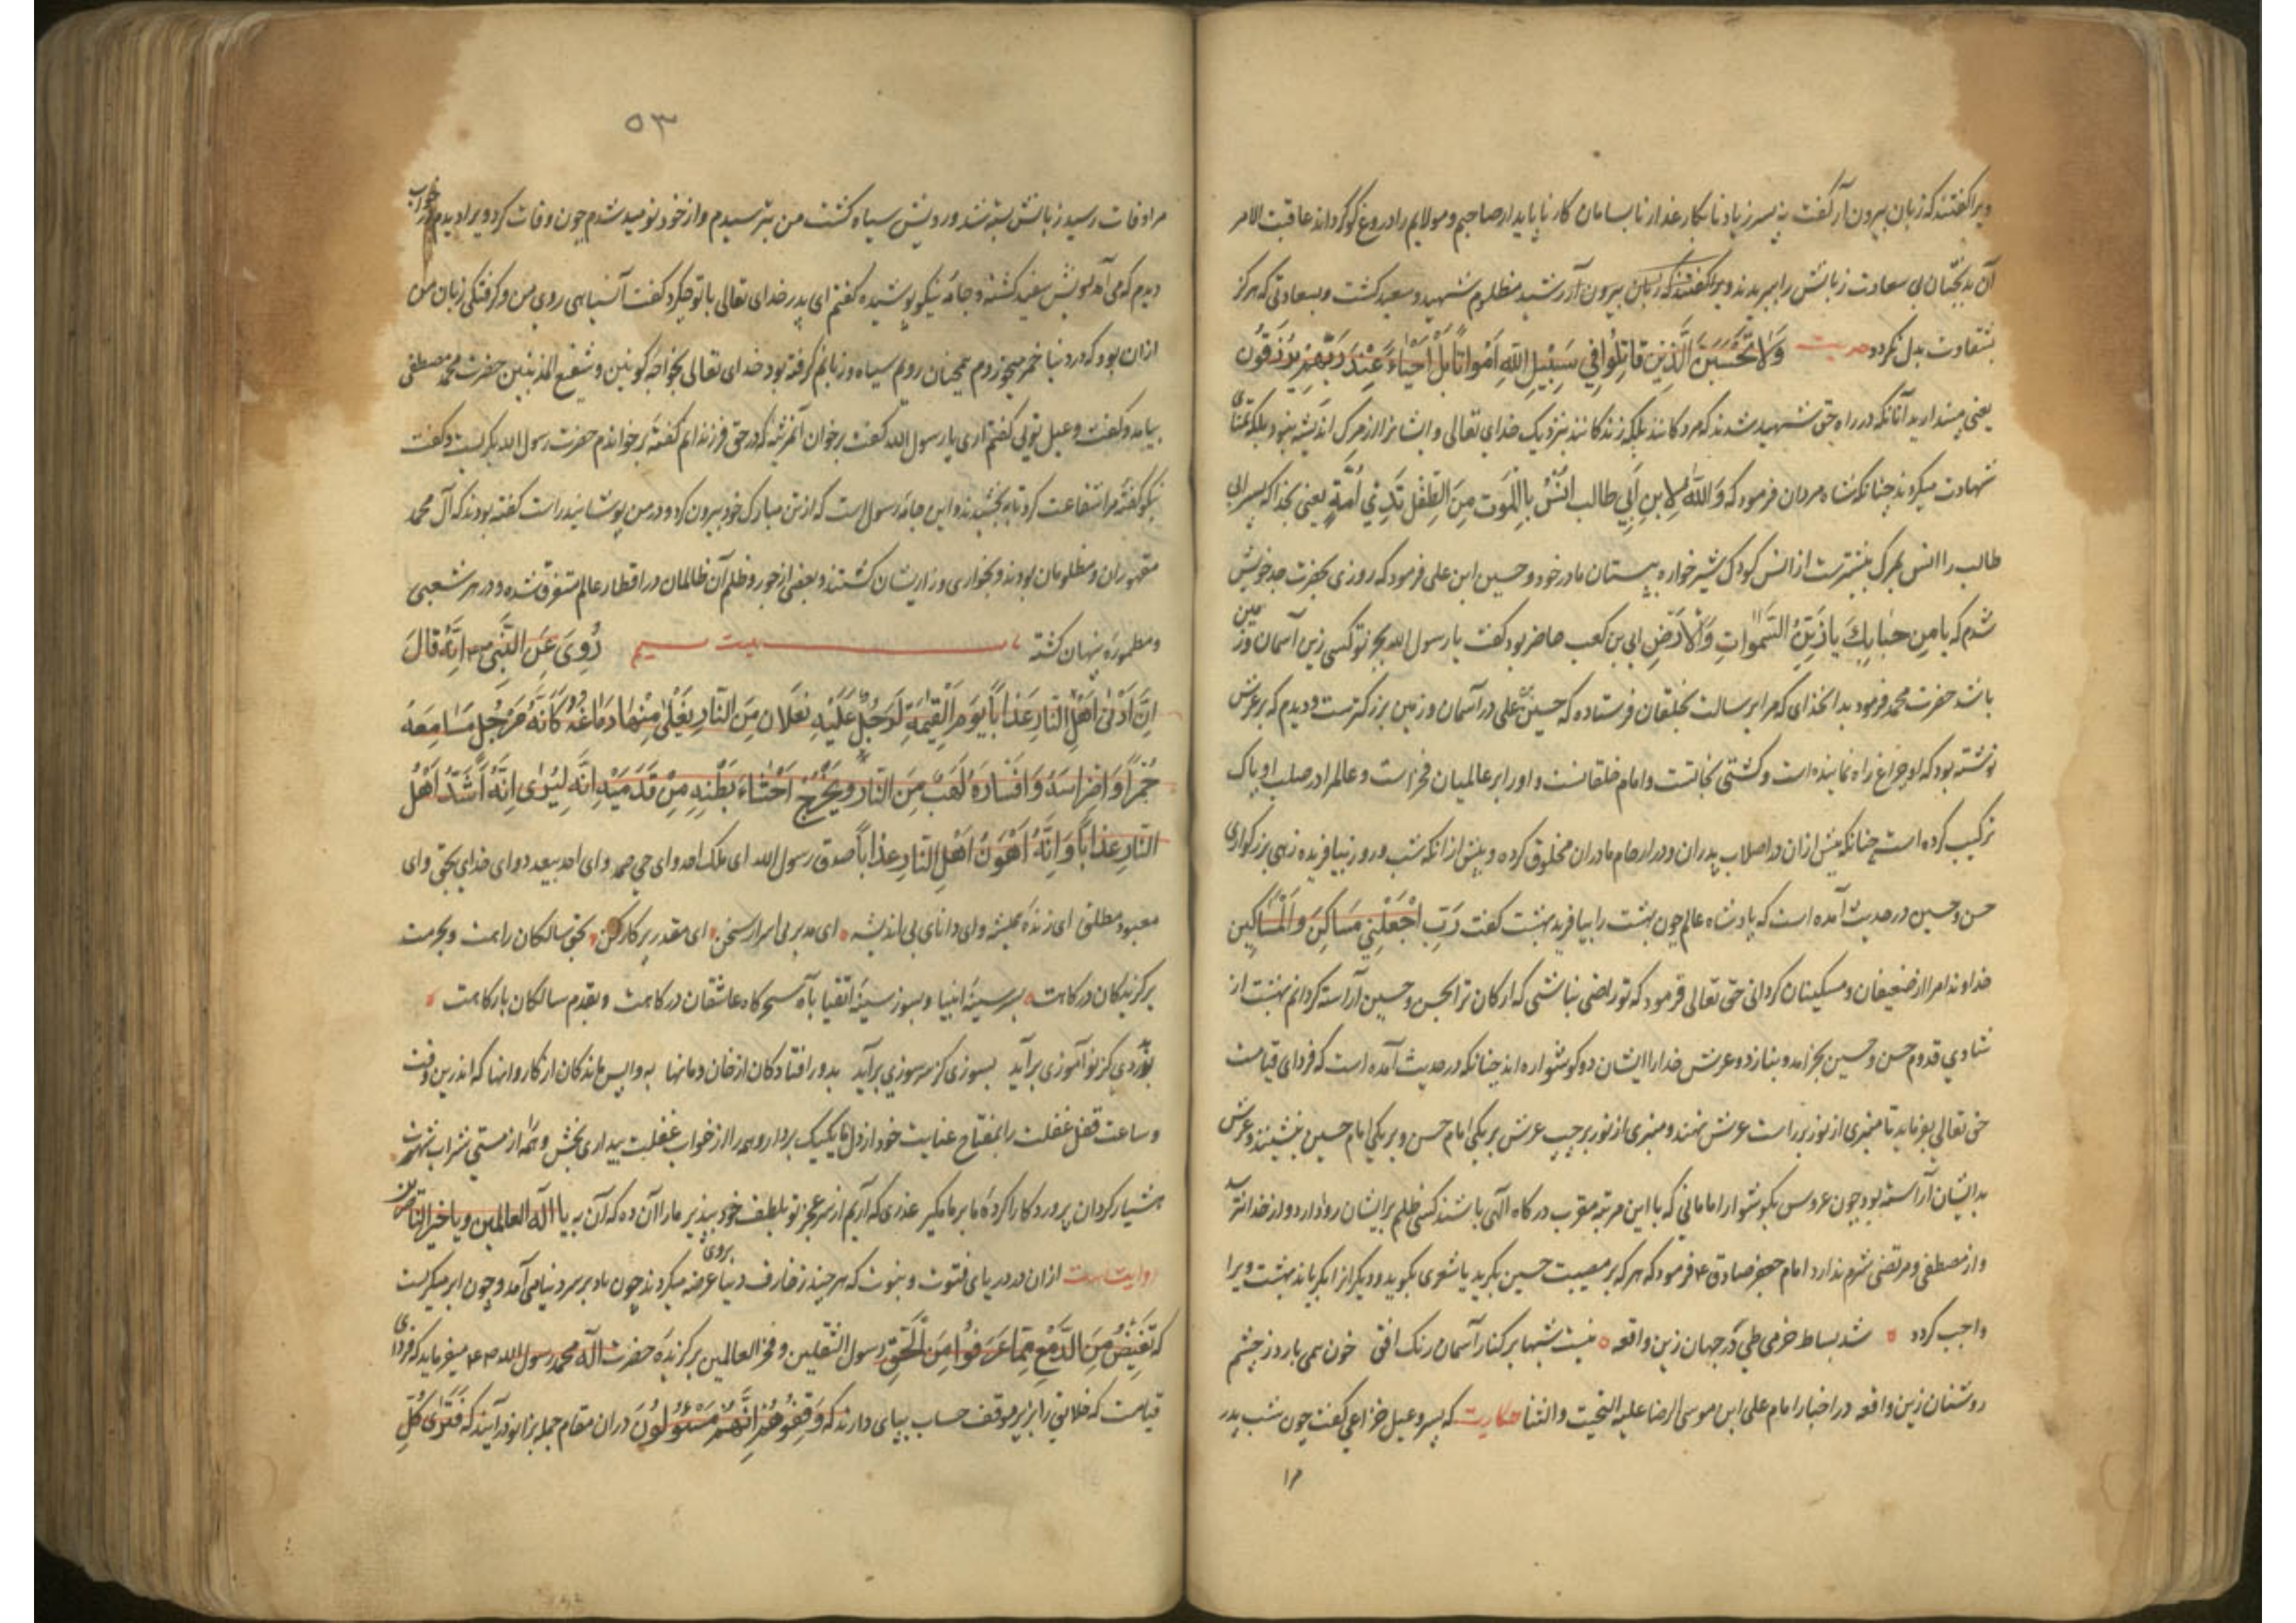 ویرا گفتند که زبان بیرون آر گفت به پسر زیاد نابکار غدار نابسامان کار ناپایدار صاحبم و مولایم را دروغ گو کرداند عاقبت الامر
آن بدبختان بی سعادت زبانش را ببریدند ویرا گفتند که زبان بیرون آر رشید مظلوم شهید و سعید کشت و بسعادتی که هرکز
بشقاوت بدل نکردد وَلَا تَحْسَبَنَّ الَّذِينَ قَاتِلُوا فِي سَبِيلِ اللَّهِ أَمْوَاتًا بَلْ أَحْيَاءٌ عِنْدَ رَبِّهِمْ يُرْزَقُونَ
یعنی مپندارید آنانکه در راه حق شهید شدند که مردکانند بلکه زندکانند بنزدیک خدای تعالی و ایشانرا از مرک اندیشه نبود بلکه تمنای
شهادت میکردند چنانکه شاه مردان فرمود که وَاللَّهِ لِابنِ أَبِي طالب انَسُ بِالْمَوتِ مِنَ الطِفْلِ بَثَدْيِ أُمِّهِ یعنی بخدا که پسر ابی
طالب را انس بمرک بیشترست از انس کودک شیرخواره به پستان مادر خود و حسین ابن علی فرمود که روزی بحضرت جد خویش
شدم که یا مرحبا بک یا زَيْنَ السَّموَاتِ وَالْأَرْضِ ابی بن کعب حاضر بود گفت یا رسول الله بجز تو کسی زین آسمان و زمین
باشد حضرت محمد فرمود بدانخدای که مرا برسالت بخلقان فرستاده که حسین علی در آسمان و زمین بزرکترست و دیدم که بر عرش
نوشته بود که او چراغ راه نماینده است و کشتی نجاتست و امام خلقانست و او را بر عالمیان فخر است و عالم را در صلب او پاک
ترکیب کرده است چنانکه پیش ازان در اصلاب پدران و در ارحام مادران مخلوق کرده و پیش ازانکه شب و روز بیافریده زهی بزرکواری
حسن و حسین در حدیث آمده است که پادشاه عالم چون بهشت را بیافرید بهشت گفت رَبِّ اجْعَلْنِي مَسَاكِنَ وَالْمَسَاكِين
خداوندا مرا از ضعیفان و مسکینان کردانی حق تعالی فرمود که تو راضی نباشی که ارکان ترا بحسن و حسین آراسته کردانم بهشت از
شادی قدوم حسن و حسین بخرامد و بنازد و عرش خدا را ایشان دو کوشواره اند چنانکه در حدیث آمده است که فردای قیامت
حق تعالی بفرماید تا منبری از نور بر راست عرش نهند و منبری از نور بر چپ عرش بر یکی امام حسن و بر یکی امام حسین بنشینند و عرش
بدایشان آراسته بود چون عروس بکوشوار امامانی که با این مرتبه مقرب درکاه الهی باشند کسی ظلم بر ایشان روا دارد و از خدا نترسد
و از مصطفی و مرتضی شرم ندارد امام جعفر صادق ع فرمود که هر که بر مصیبت حسین بکرید یا شعری بکوید و دیکرانرا بکریاند بهشت ویرا
واجب کردد شد بساط خرمی طی در جهان زین واقعه نیست شبها بر کنار آسمان رنک افق خون همی بارد ز چشم
روشنان زین واقعه در اخبار امام علی ابن موسی الرضا علیه التحیت والثنا حکایت که پسر دعبل خزاعی گفت چون شب پدر
۵۳
مرا وفات رسید زبانش بسته شد و رویش سیاه کشت من بترسیدم و از خود نومید شدم چون وفات کرد ویرا دیدم در خواب
دیدم که می آمد رویش سفید کشته و جامه نیکو پوشیده گفتم ای پدر خدای تعالی با تو چکرد گفت آن سیاهی روی من و کرفتکی زبان من
ازان بود که در دنیا خمر میخوردم همچنان رویم سیاه و زبانم کرفته بود خدای تعالی بخواجه کونین و شفیع المذنبین حضرت محمد مصطفی
بیامد و گفت دعبل تویی گفتم آری یا رسول الله گفت برخوان آن مرثیه که در حق فرزندانم گفته برخواندم حضرت رسول الله بکریست و گفت
نیکو گفته مرا شفاعت کرد تا به بخشیدند و این جامه رسول است که از تن مبارک خود بیرون کرد و در من پوشانید راست گفته بودند که آل محمد
مقهوران و مظلومان بودند و بخواری و زاریشان کشتند و بعضی از جور و ظلم آن ظالمان در اقطار عالم متفرق شده و در هر شعبی
و مطموره پنهان کشته رُوِيَ عَنِ النَّبِيِّ اِنَّهُ قَالَ
اِنَّ اَدْنَى اَهْلِ النَّارِ عَذَاباً يَوْمَ الْقِيمَةِ لَرَجُلٌ عَلَيْهِ نَعْلَانِ مِنَ النَّارِ يَغْلِى مِنْهُمَا دِمَاغُهُ كَانَّهُ مِرْجُلٌ مَسَامِعَهُ
جَمْراً وَاَضْرَاسَهُ وَاَشْفَارَهُ لَهَبٌ مِنَ النَّارِ وَيَخْرُجُ اَحْشَاءَ بَطْنِهِ مِنْ قَدَمَيْهِ اِنَّهُ لَيَرَى اِنَّهُ اَشَدُّ اَهْلِ
النَّارِ عَذَاباً وَاِنَّهُ اَهْوَنُ اَهْلِ النَّارِ عَذَاباً صدق رسول الله ای ملک احد و ای حی صمد و ای احد بیعدد و ای خدای بحق و ای
معبود مطلق ای زنده همیشه و ای دانای بی اندیشه ای مدبر بی اسرار سخن ای مقدر پرکار کن بحق سالکان راهت و بحرمت
برکزیدکان درکاهت بسر سینه انبیا و بسوز سینه اتقیا بآه سحرکاه عاشقان درکاهت و بقدم سالکان بارکاهت
بدردی کز نوآموزی برآید بسوزی کز سر سوزی برآید بدور افتادکان از خان و مانها به واپس ماندکان از کاروانها که اندرین وقت
و ساعت قفل غفلت را بمفتاح عنایت خود از دل یک بیک بردار و همه را از خواب غفلت بیداری بخش و همه از مستی شراب شهوت
هشیار کردان پروردکارا کرده ما بر ما مکیر عذری که آریم از سر عجز تو بلطف خود بپذیر ما را آن ده که آن به یا اله العالمین و یا خیر الناصرین
روایتست ازان در دریای فتوت و نبوت که هر چند زخارف دنیا بروی عرضه میکردند چون باد بر سر دنیا می آمد و چون ابر میکریست
که تَفِيضُ مِنَ الدَّمْعِ مِمَّا عَرَفُوا مِنَ الْحَقِّ رسول الثقلین و فخر العالمین برکزیده حضرت اله محمد رسول الله میفرماید که فردای
قیامت که خلایق را بزیر موقف حساب بپای دارند که وَقِفُوهُمْ اِنَّهُمْ مَسْئُولُونَ دران مقام جمله بزانو درآیند که فَتَرَى كُلَّ